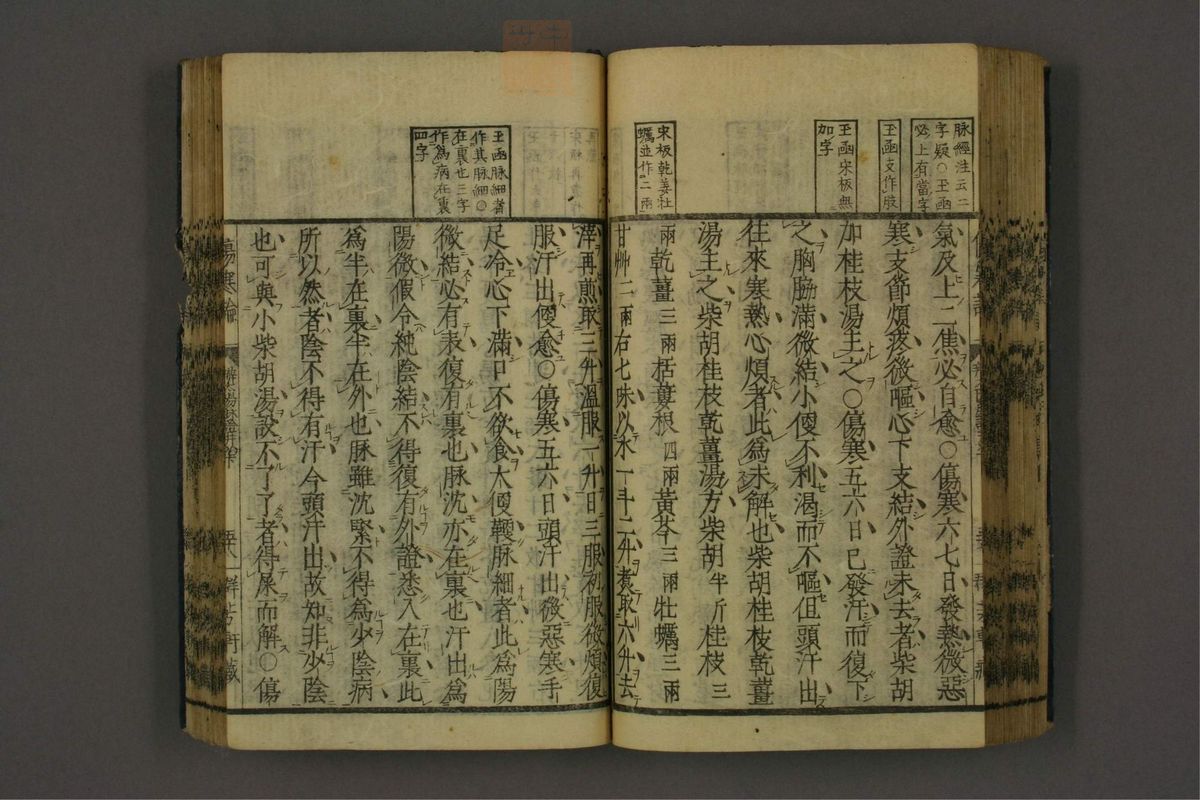 脉經注云二
字疑〇玉函
必上有當字
玉函支作肢
玉函宋板無
加字
宋板乾姜牡
蠣並作二兩
氣及上二焦必自愈〇傷寒六七日發熱微惡
寒支節煩疼微嘔心下支結外證未去者柴胡
加桂枝湯主之〇傷寒五六日已發汗而復下
之胸脇滿微結小便不利渴而不嘔但頭汗出
往來寒熱心煩者此爲未解也柴胡桂枝乾薑
湯主之柴胡桂枝乾薑湯方柴胡半斤桂枝三
兩乾薑三兩栝蔞根四兩黃芩三兩牡蠣三兩
甘艸二兩右七味以水一斗二升煮取六升去
玉函脉細者
作其脉細〇
在裏也三字
作爲病在裏
四字
滓再煎取三升溫服一升日三服初服微煩復
服汗出便愈〇傷寒五六日頭汗出微惡寒手
足冷心下滿口不欲食大便鞕脉細者此爲陽
微結必有表復有裏也脉沈亦在裏也汗出爲
陽微假令純陰結不得復有外證悉入在裏此
爲半在裏半在外也脉雖沈緊不得爲少陰病
所以然者陰不得有汗今頭汗出故知非少陰
也可與小柴胡湯設不了了者得屎而解〇傷
傷寒論